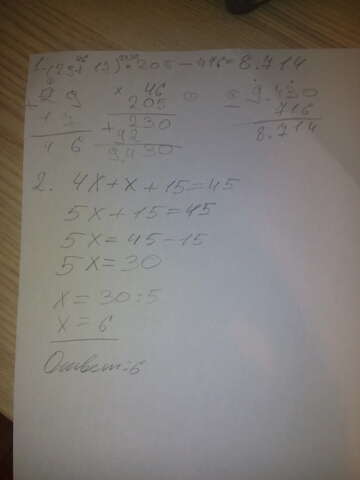 1. (29+17)•205-416=8.714
29
+
17
46
×
46
205
+
230
92
9.430
-
9.430
716
8.714
2. 4x+x+15=45
5x+15=45
5x=45-15
5x=30
x=30:5
x=6
Ответ:6